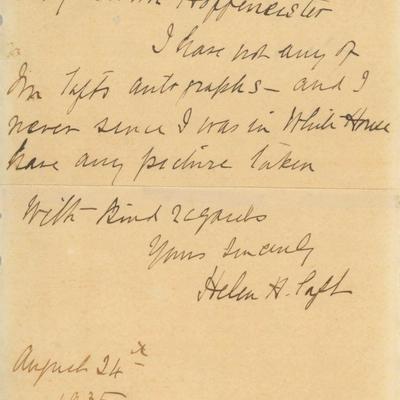 Hoffmeister
I have not any of
Mr Tafts autographs - and I
never since I was in White House
have any picture taken
With kind regards
Yours sincerely
Helen H. Taft
August 24th
1935